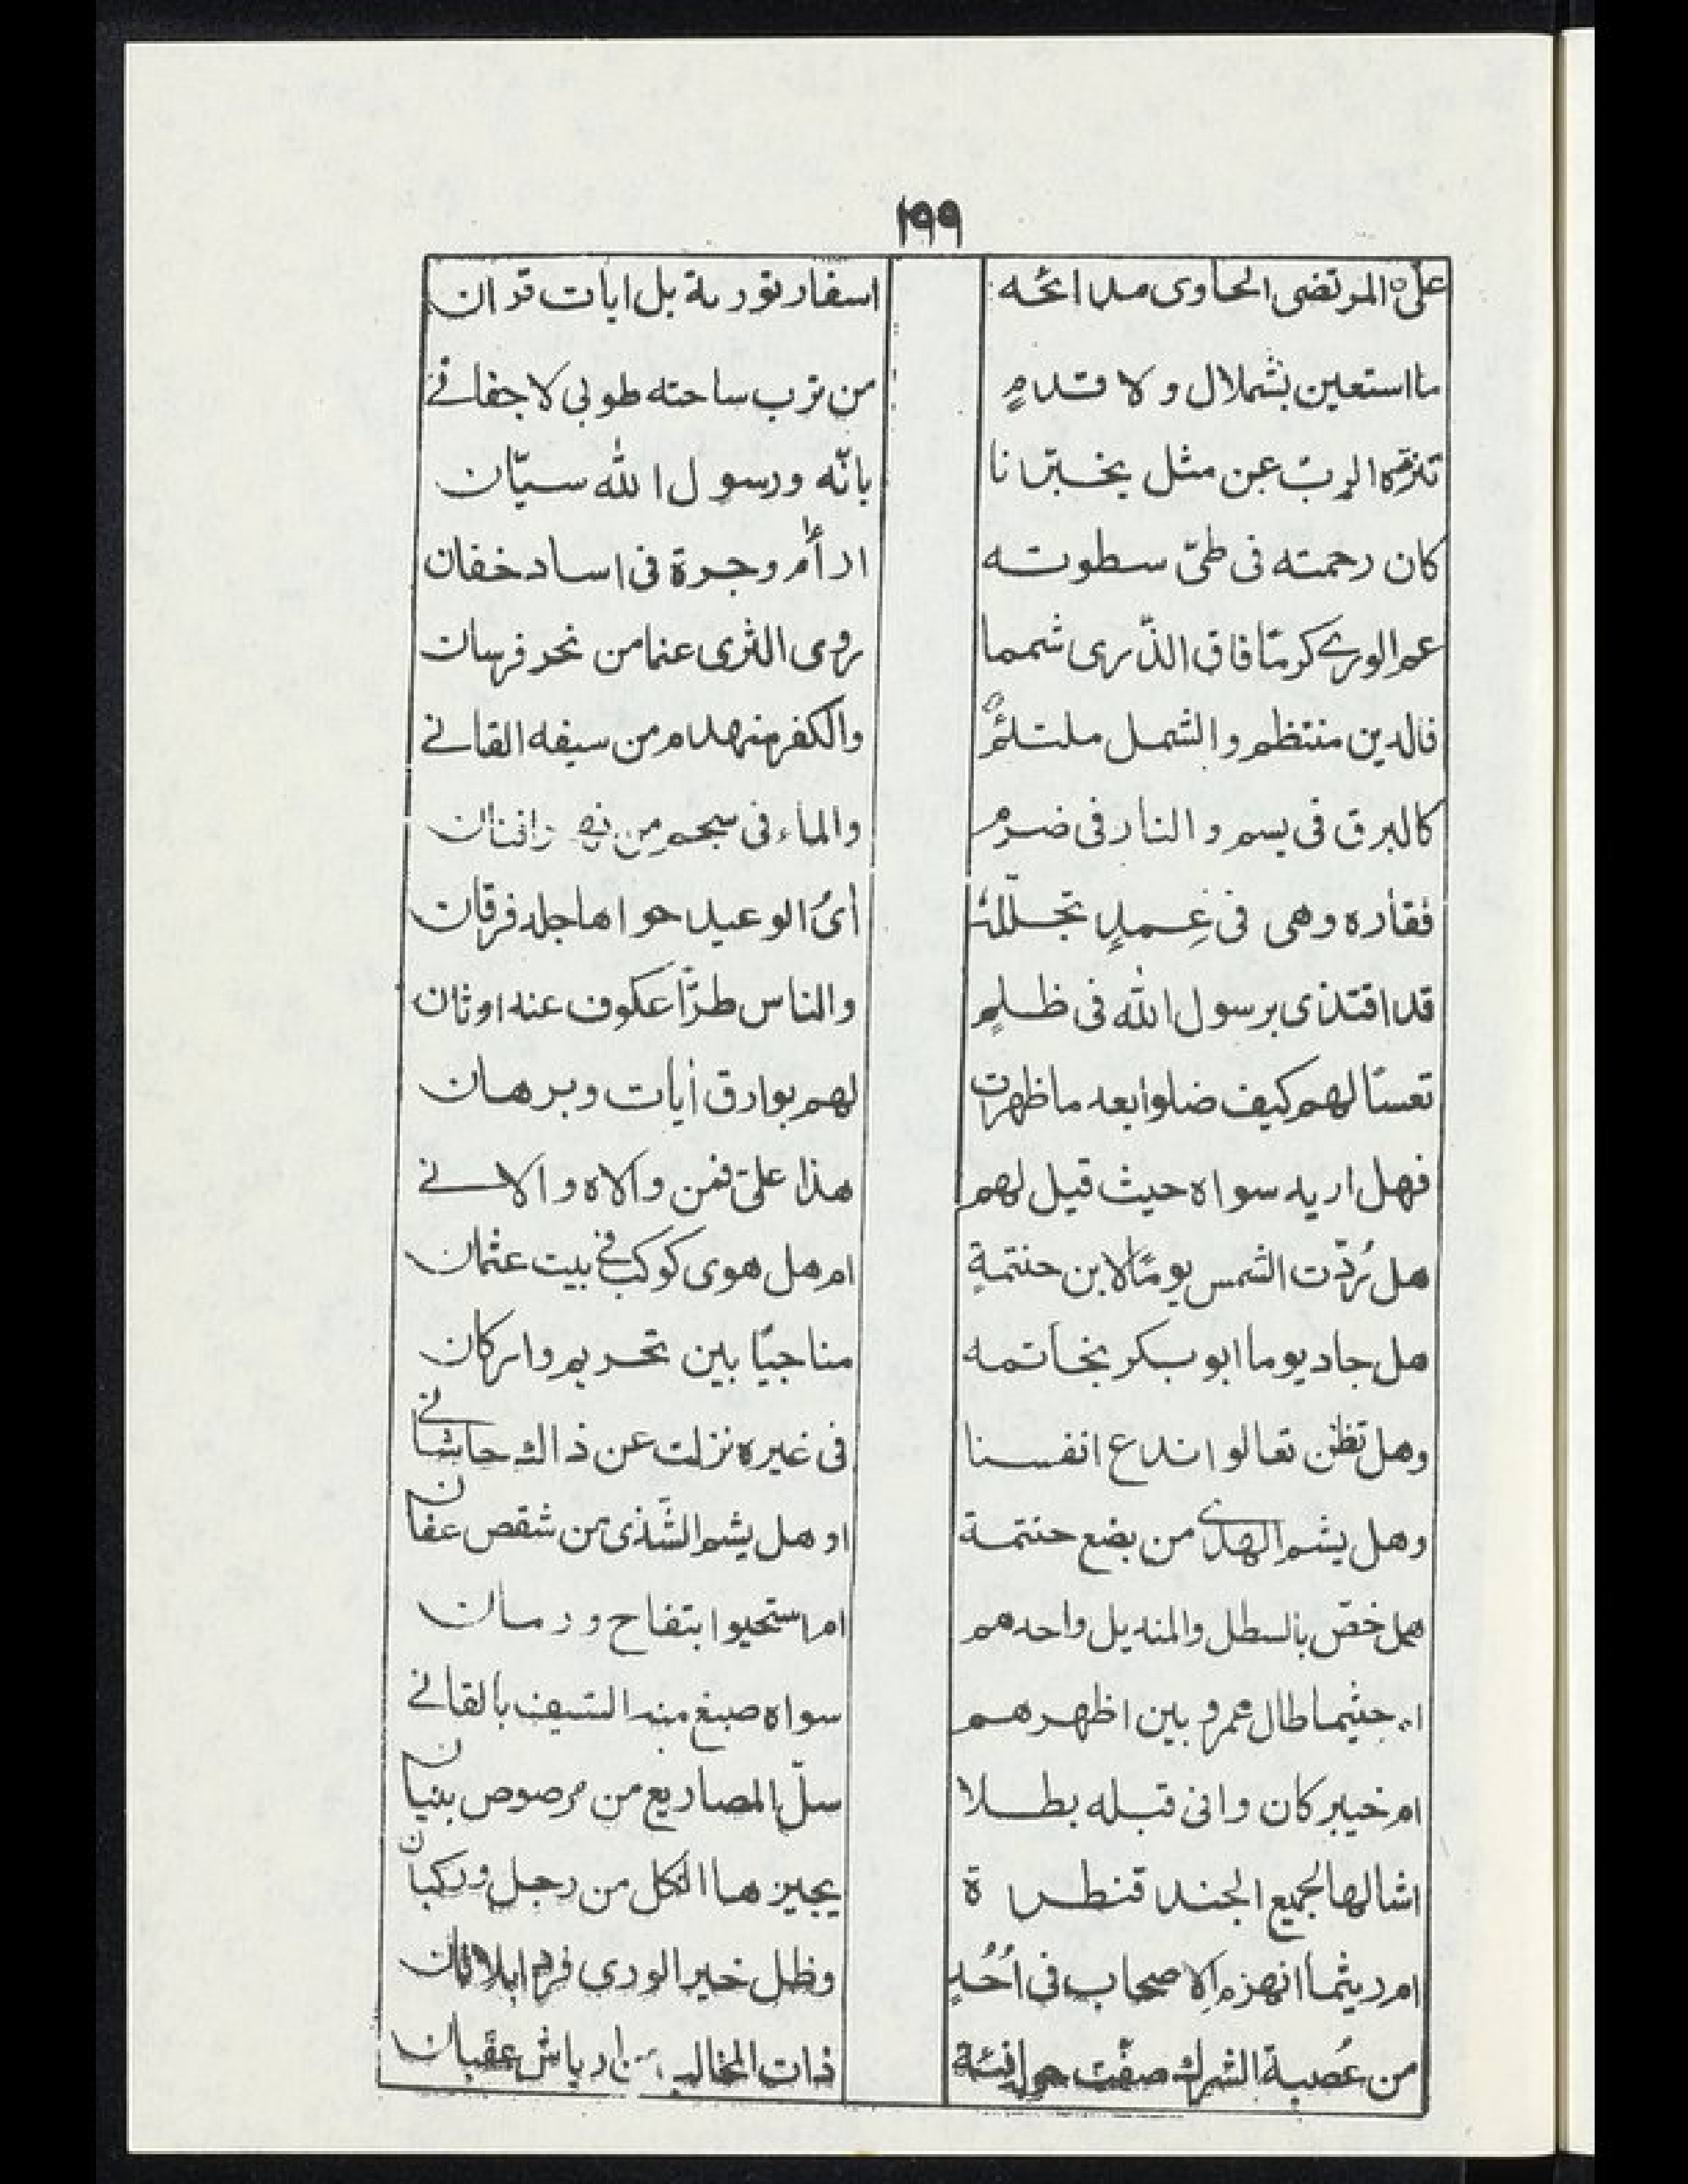 ١٩٩
علىّ المرتضى الحاوى مدائحه اسفار تورىة بل ايات قران
ما استعين بشملال ولا قدمٍ من ترب ساحته طوبى لاجفانے
تنزه الربّ عن مثل يخبّرنا بانّه ورسول الله سيّان
كان رحمته فى طىّ سطوته ارأم وجرة فى اساد خفان
عم الورے كرمًا فاق الذّرى شمما روى الثرى عنما من نحر فرسان
فالدين منتظم والشمل ملتئمٌ والكفر منهدم من سيفه القانے
كالبرق فى بسم والنار فى ضرم والماء فى سجم من
فقاره وهى فى غِمدٍ تجلّله أىُ الوعيد حواها جلد فرقان
قد اقتدى برسول الله فى ظلمٍ والناس طرّا عكوف عنه اوثان
تعسًا لهم كيف ضلوا بعد ما ظهرت لهم بوارق أيات وبرهان
فهل اريد سواه حيث قيل لهم هذا علىّ فمن والاه والانے
هل رُدّت الشمس يومًا لابن حنتمةٍ ام هل هوى كوكب فے بيت عثمان
هل جاد يوما ابو بكر بخاتمه مناجيًا بين تحريم واركان
وهل تظن تعالوا ندع انفسنا فى غيره نزلت عن ذاك حاشانے
وهل يشم الهدے من بضع حنتمة او هل يشم الشّذى من شقص عفان
هل خصّ بالسطل والمنديل واحدهم ام استحيوا بتفاح ورمان
ام حيثما طال عمرو بين اظهرهم سواه صبغ منه السّيف بالقانے
ام خيبر كان وانى قبله بطلا سلّ المصاريع من مرصوص بنيان
اشالها لجميع الجند قنطرة يجيزها الكل من رجل وركبان
ام ريثما انهزم الاصحاب فى اُحُدٍ وظل خير الورى فردا بلا ثان
من عُصبة الشرك صفّت حوله فئة ذات المخالب من ارياش عقبان